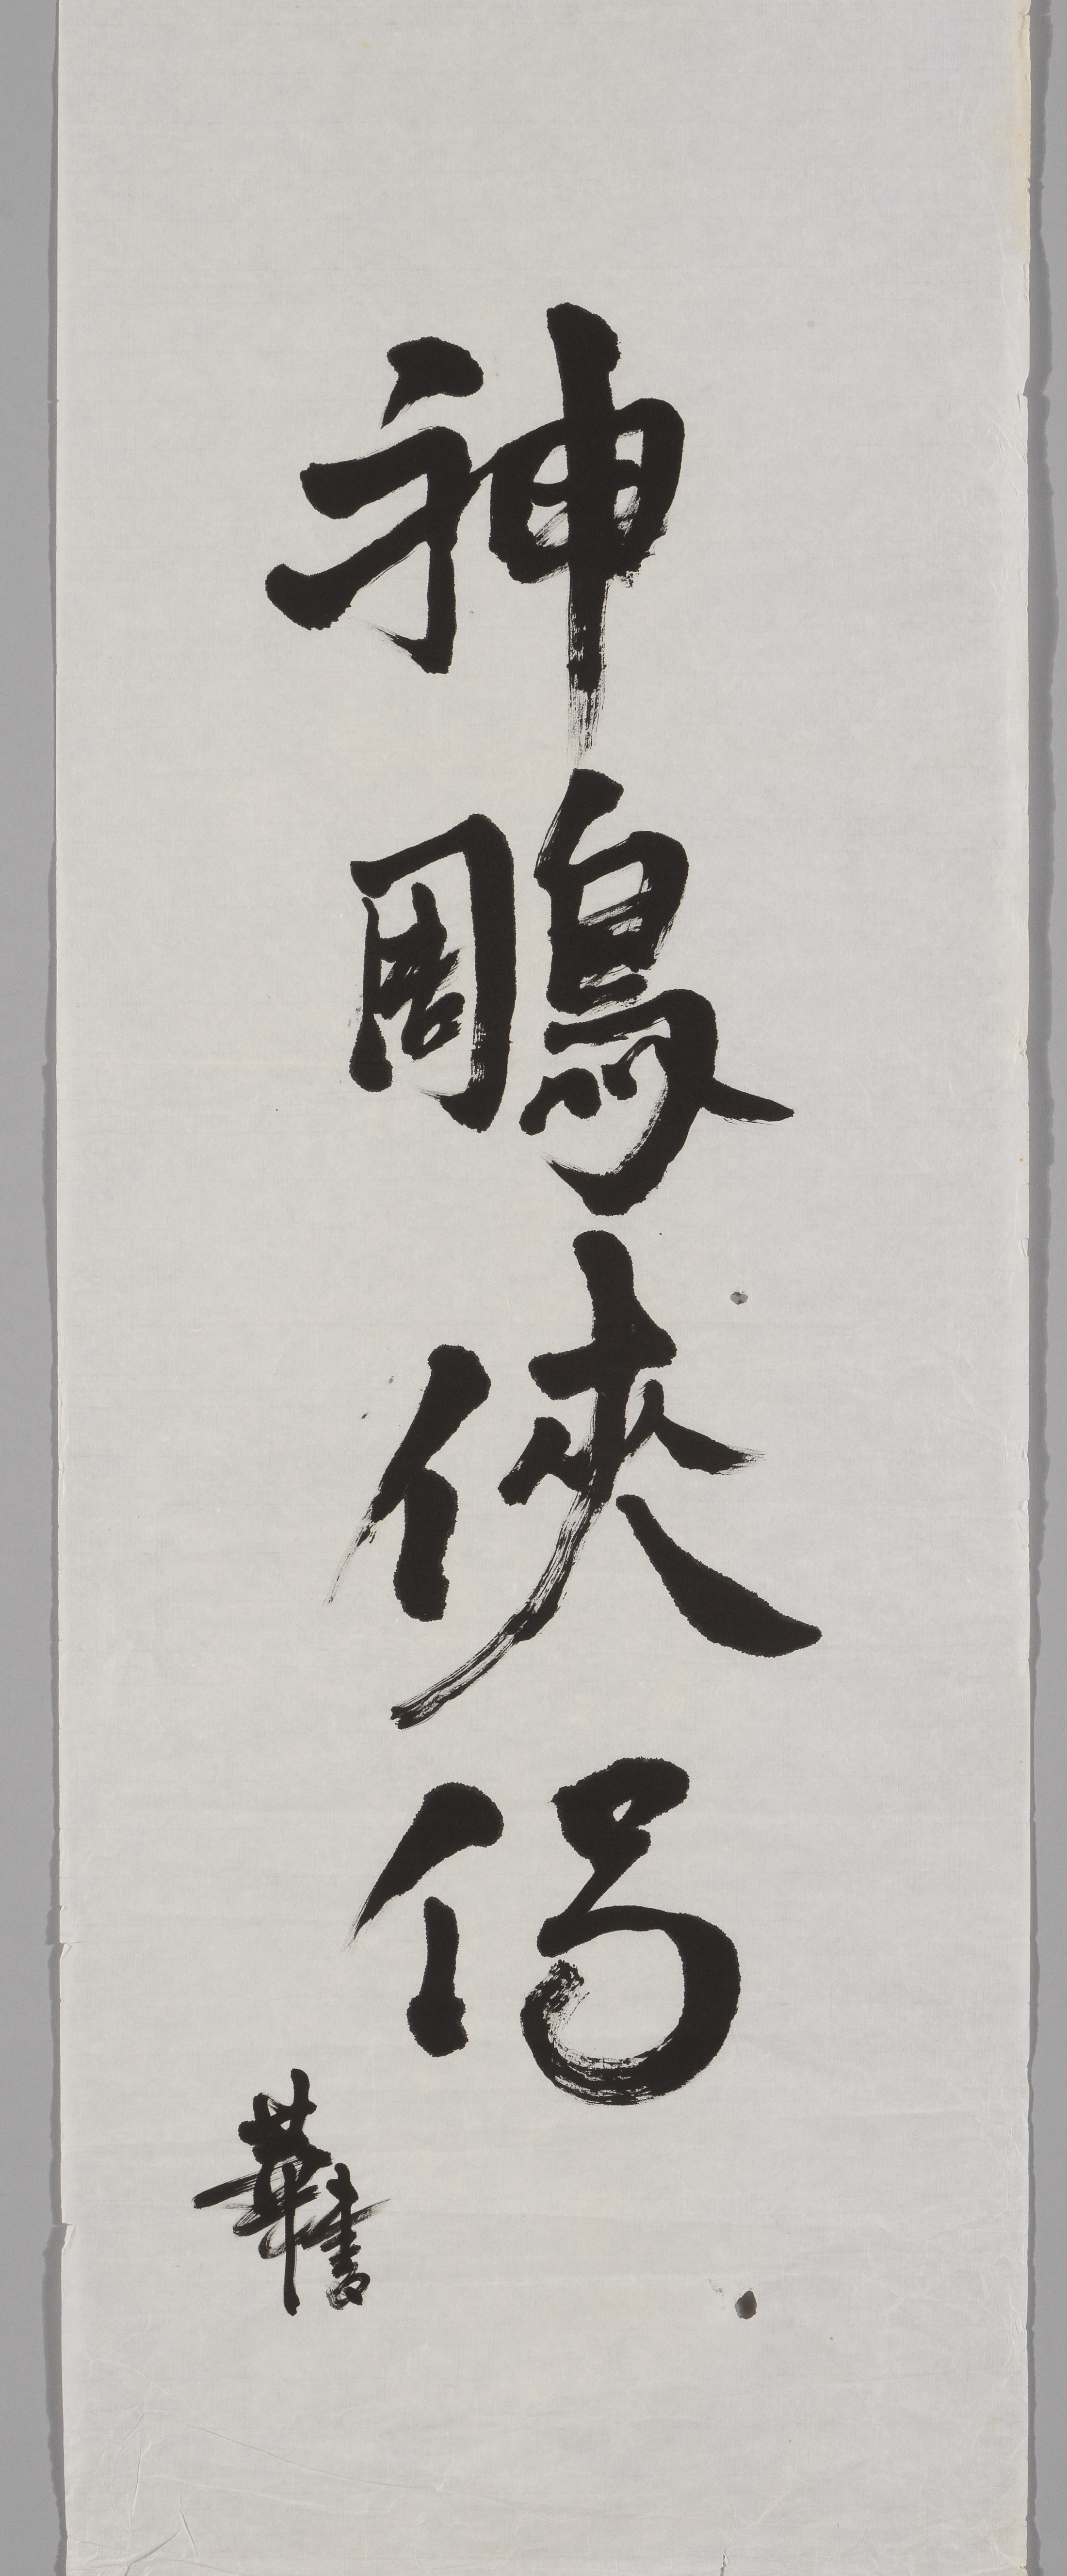 神鵰俠侶
華書